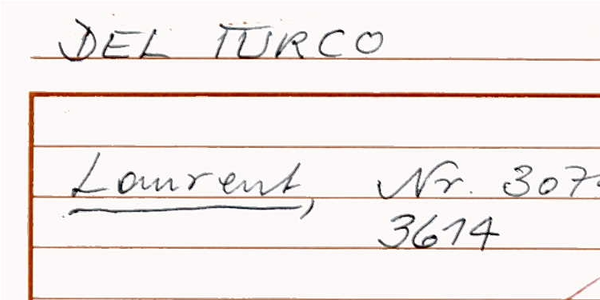 DEL TURCO
Laurent, Nr. 307
3614